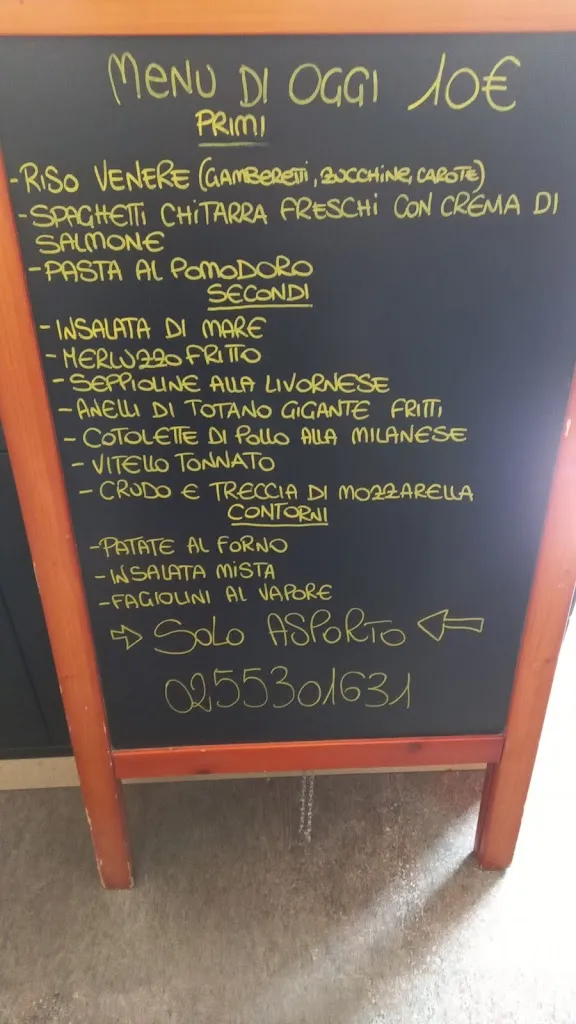 MENU DI OGGI 10€
PRIMI
-RISO VENERE (GAMBERETTI, ZUCCHINE, CAROTE)
-SPAGHETTI CHITARRA FRESCHI CON CREMA DI
SALMONE
-PASTA AL POMODORO
SECONDI
-INSALATA DI MARE
-MERLUZZO FRITTO
-SEPPIOLINE ALLA LIVORNESE
-ANELLI DI TOTANO GIGANTE FRITTI
-COTOLETTE DI POLLO ALLA MILANESE
-VITELLO TONNATO
-CRUDO E TRECCIA DI MOZZARELLA
CONTORNI
-PATATE AL FORNO
-INSALATA MISTA
-FAGIOLINI AL VAPORE
⇒ SOLO ASPORTO ⇐
0255301631